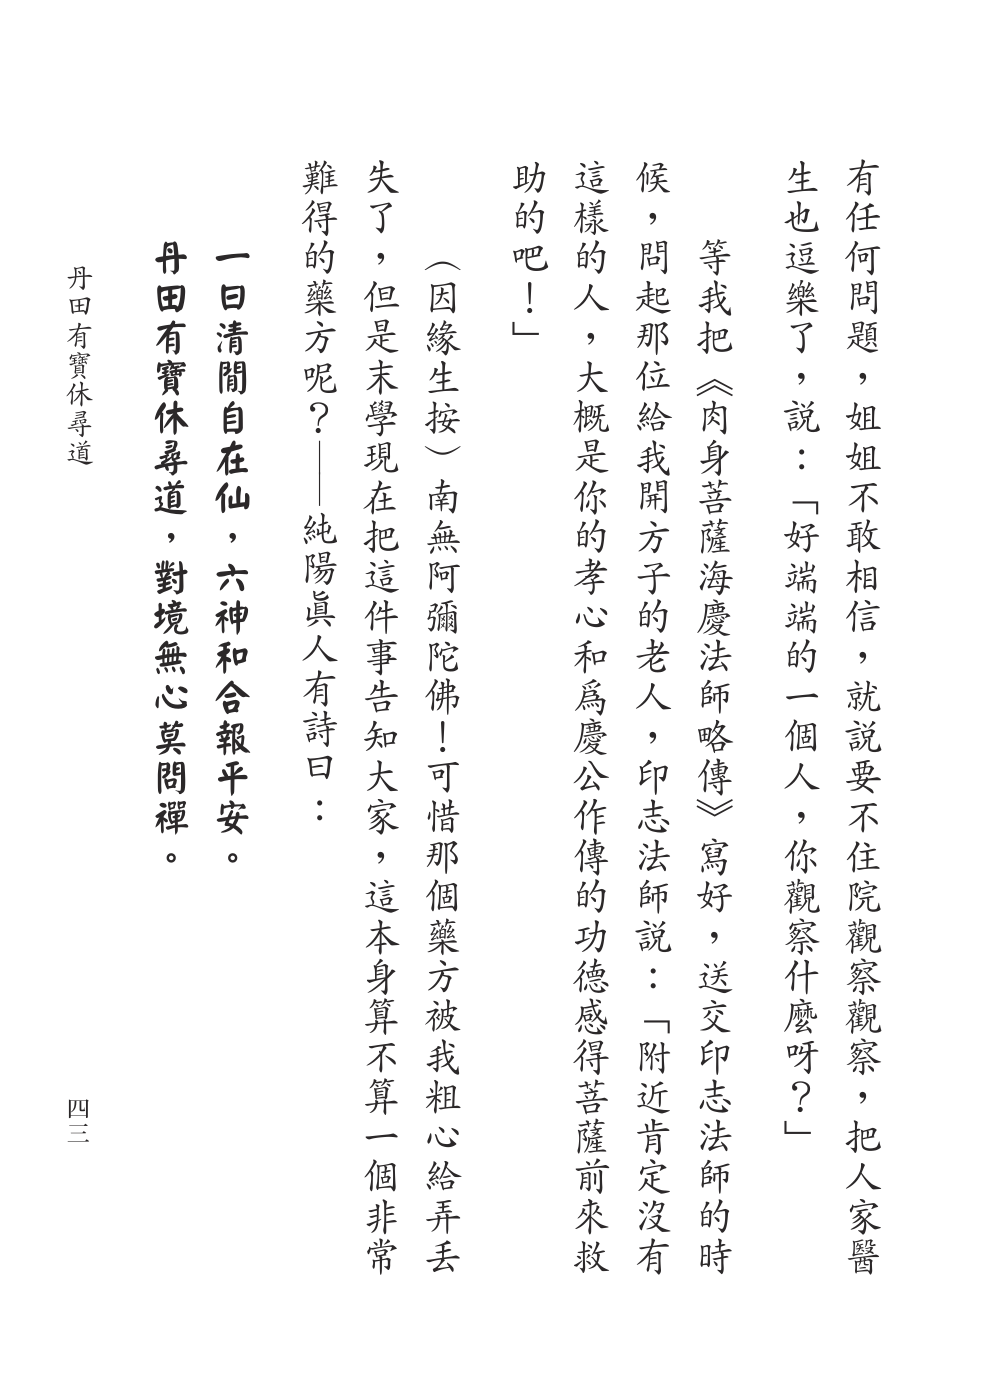 有任何問題，姐姐不敢相信，就説要不住院觀察觀察，把人家醫
生也逗樂了，説：「好端端的一個人，你觀察什麼呀？」
等我把《肉身菩薩海慶法師略傳》寫好，送交印志法師的時
候，問起那位給我開方子的老人，印志法師説：「附近肯定沒有
這樣的人，大概是你的孝心和爲慶公作傳的功德感得菩薩前來救
助的吧！」
（因緣生按）南無阿彌陀佛！可惜那個藥方被我粗心給弄丟
失了，但是末學現在把這件事告知大家，這本身算不算一個非常
難得的藥方呢？——純陽眞人有詩曰：
一日清閒自在仙，六神和合報平安。
丹田有寶休尋道，對境無心莫問禪。
丹田有寶休尋道
四三